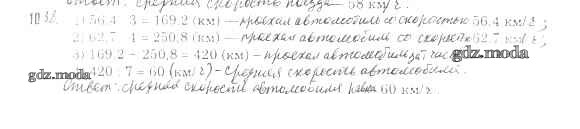 Ответ: средняя скорость поезда 68 км/ч.
1) 56,4 · 3 = 169,2 (км) — проехал автомобиль со скоростью 56,4 км/ч;
2) 62,7 · 4 = 250,8 (км) — проехал автомобиль со скорость 62,7 км/ч;
3) 169,2 - 250,8 = 420 (км) - проехал автомобиль за 7 час
gdz.moda
420 : 7 = 60 (км/ч) - средняя скорость автомобиля.
gdz.moda
Ответ: средняя скорости автомобиля равна 60 км/ч.